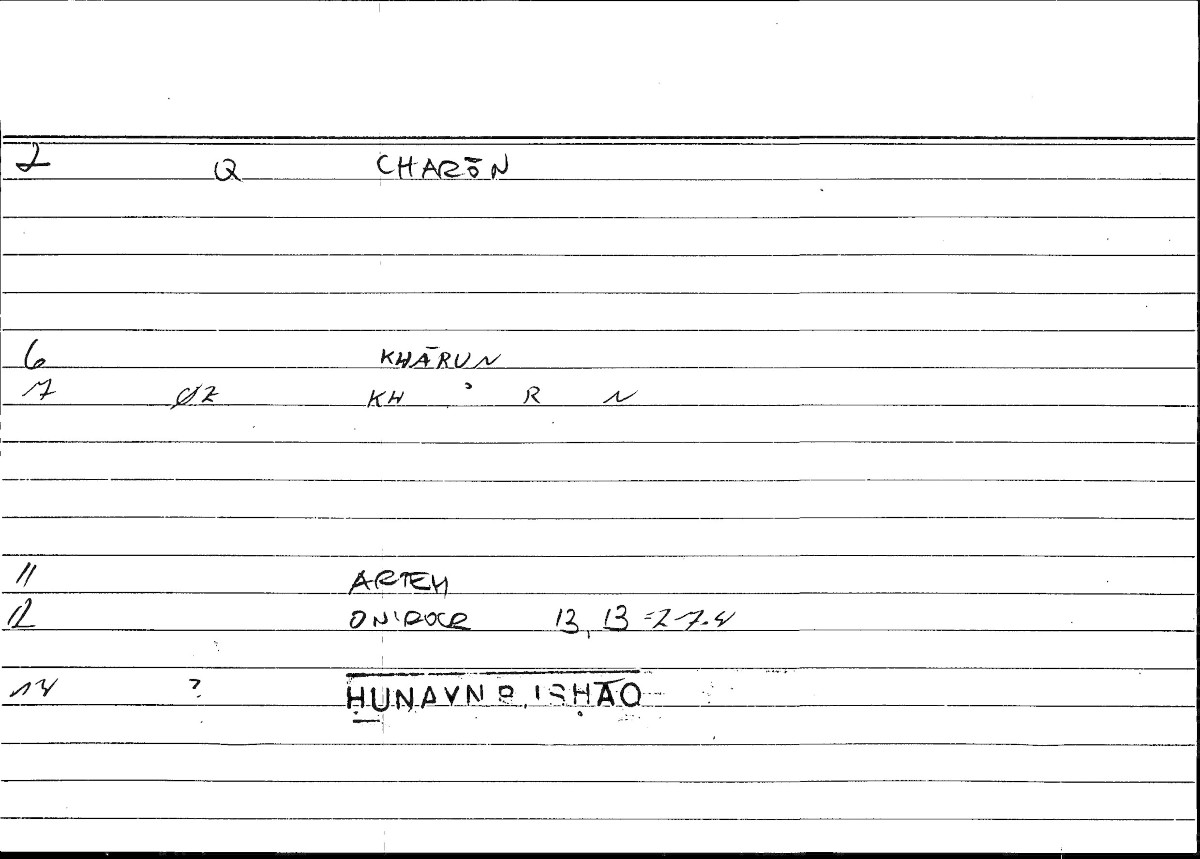 2 Q CHARŌN
6 KHĀRUN
7 ØZ KH ʾ R N
11 ARTEM
12 ONIROCR 13, 13 = 2-7.4
14 ? ḤUNAYN B. ISḤĀQ